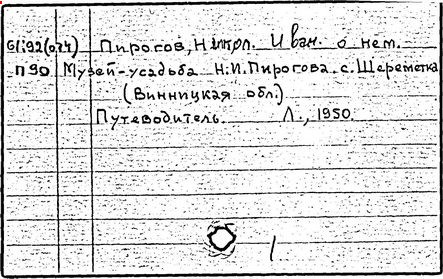 61:92(074) Пирогов, Никол. Иван. о нем.
П90 Музей-усадьба Н.И.Пирогова. с. Шереметка
(Винницкая обл.)
Путеводитель. Л., 1950.